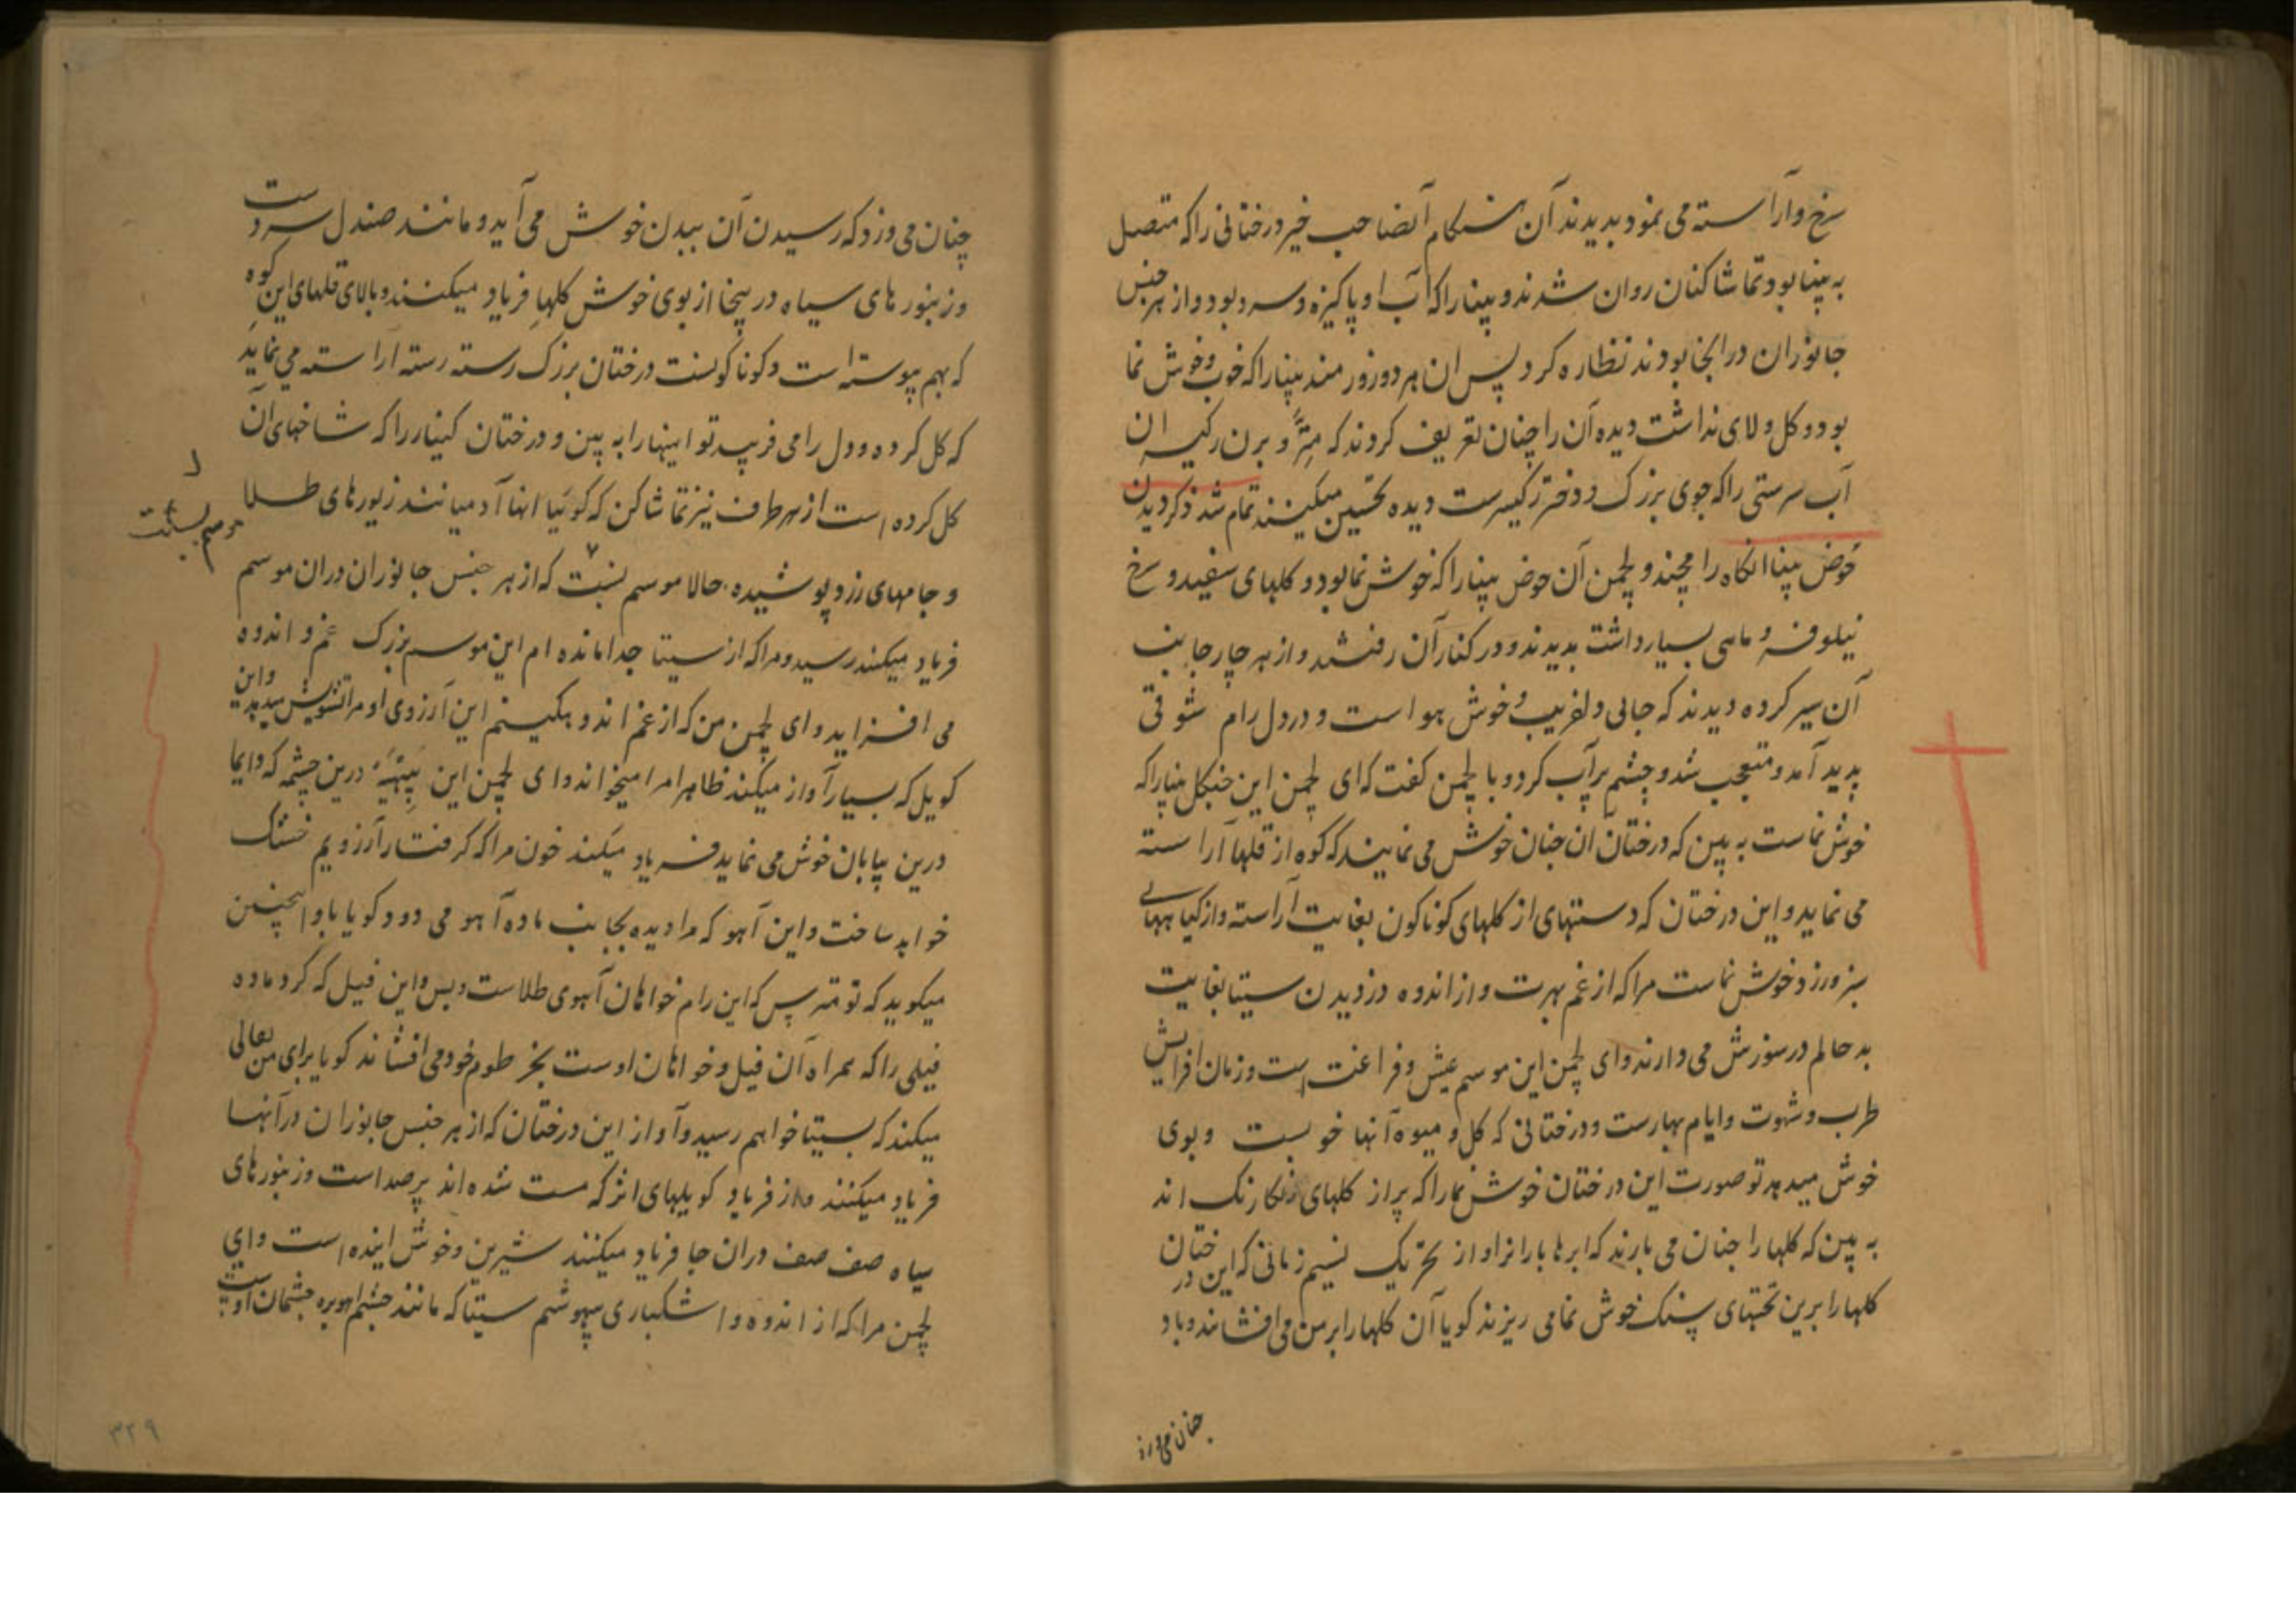 سرخ و آراسته می نمود بدیدند آن هنکام آنصاحب خیر درختانی را که متصل
به پنپا بود تماشا کنان روان شدند و پنپا را که آب او پاکیزه و سرد بود و از هر جنس
جانوران در انجا بودند نظاره کرد پس ان هر دو زورمند پنپا را که خوب و خوش نما
بود و کل و لای نداشت دیده آن را چنان تعریف کردند که و برن رکیسران
آب سرستی را که جوی بزرک و دختر رکیسرست دیده تحسین میکنند تمام شد ذکر دیدن
حوض پنپا انکاه رامچند و لچمن آن حوض پنپا را که خوش نما بود و کلهای سفید و سرخ
نیلوفر و ماهی بسیار داشت بدیدند و در کنار آن رفتند و از هر چار جانب
آن سیر کرده دیدند که جایی دلفریب و خوش هوا است و در دل رام شوقی
پدید آمد و متعجب شد و چشم پر آب کرد و با لچمن کفت که ای لچمن این جنکل پنپا را که
خوش نماست به بین که درختان ان چنان خوش می نمایند که کوه از قلها آراسته
می نماید و این درختان که دستهای از کلهای کوناکون بغایت آراسته و از کیاههای
سبز و زرد خوش نماست مرا که از غم بهرت و از اندوه دزدیدن سیتا بغایت
بد حالم در سوزش می دارند و ای لچمن این موسم عیش و فراغت است و زمان افزایش
طرب و شهوت و ایام بهارست و درختانی که کل و میوه آنها خوبست و بوی
خوش میدهد تو صورت این درختان خوش نما را که پر از کلهای رنکارنک اند
به بین که کلها را چنان می بارند که ابرها باران را و از تحریک نسیم زمانی که این درختان
کلها را برین تختهای سنک خوش نما می ریزند کویا آن کلها را بر من می افشانند و باد
چنان می وزد
چنان می وزد که رسیدن آن ببدن خوش می آید و مانند صندل سردست
و زنبورهای سیاه درینجا از بوی خوش کلها فریاد میکنند و بالای قلهای این کوه
که بهم پیوسته است و کوناکونست درختان بزرک رسته رسته آراسته می نماید
که کل کرده و دل را می فریبد تو اینها را به بین و درختان کنیار را که شاخهای آن
کل کرده است از هر طرف نیز تماشا کن که کوئیا انها آدمیانند زیورهای طلا
و جامهای زرد پوشیده حالا موسم بسنت که از هر جنس جانوران دران موسم
موسم بسنت
فریاد میکنند رسید و مرا که از سیتا جدا مانده ام این موسم بزرک غم و اندوه
می افزاید و ای لچمن من که از غم اندوهکینم این آرزوی او مرا تشویش میدهد و این
کویل که بسیار آواز میکند ظاهرا مرا میخواند و ای لچمن این پپیهه درین چشمه که دایما
درین بیابان خوش می نماید فریاد میکند خون مرا که کرفتار آرزویم خشک
خواهد ساخت و این آهو که مرا دیده بجانب ماده آهو می دود کویا با او اینچنین
میکوید که تو مترس که این رام خواهان آهوی طلاست و بس و این فیل که کرد ماده
فیلی را که همراه آن فیل و خواهان اوست بخرطوم خود می افشاند کویا برای من فالی
میکند که بسیتا خواهم رسید و آواز این درختان که از هر جنس جانوران در آنها
فریاد میکنند و از فریاد کویلهای نر که مست شده اند پر صداست و زنبورهای
سیاه صف صف دران جا فریاد میکنند شیرین و خوش اینده است و ای
لچمن مرا که از اندوه و اشکباری بیهوشم سیتا که مانند چشم اهو بره چشمان اوست
٣٢٩